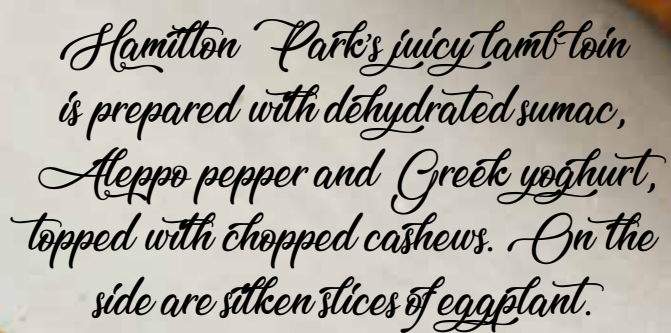 Hamilton Park's juicy lamb loin
is prepared with dehydrated sumac,
Aleppo pepper and Greek yoghurt,
topped with chopped cashews. On the
side are silken slices of eggplant.